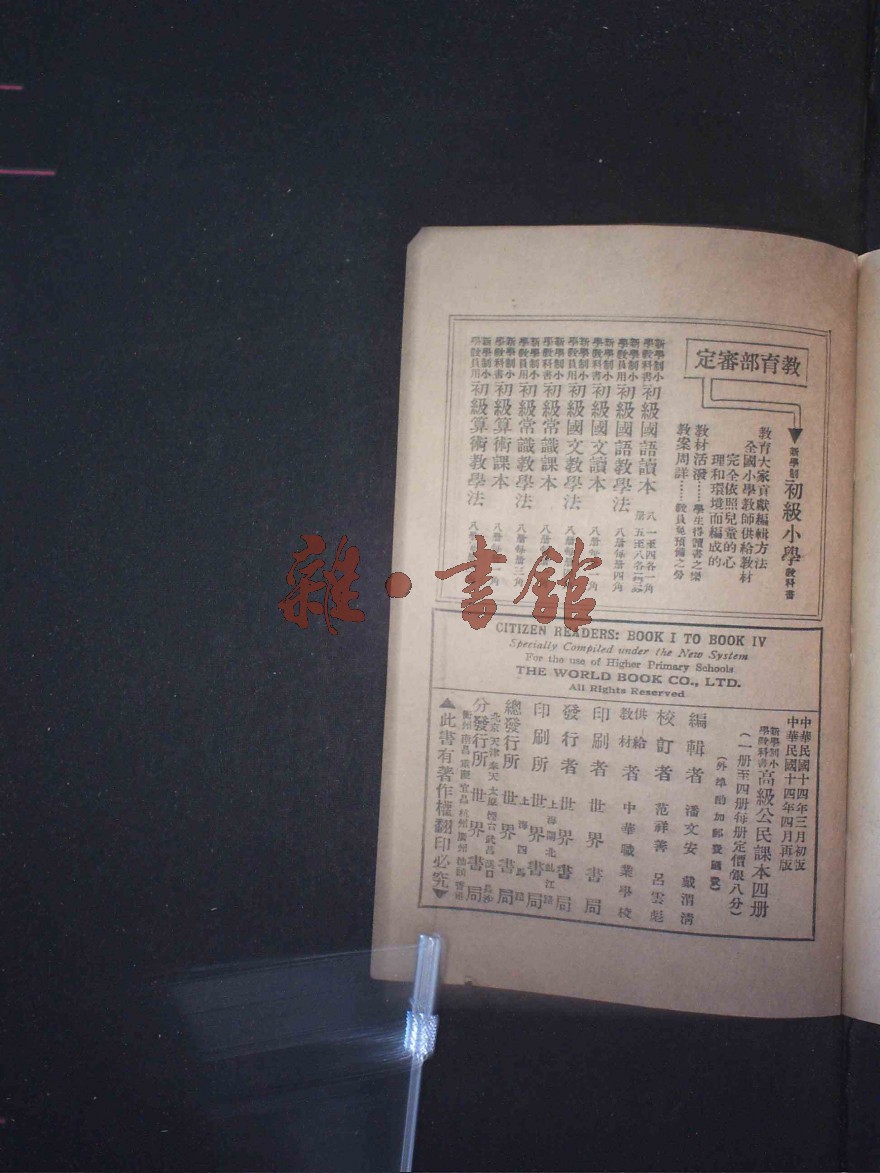 教育部審定
新學制初級小學教科書
教育大家貢獻編輯方法
全國小學教師供給教材
完全依照兒童的心
理和環境而編成的
教材活潑……學生得讀書之樂
教案周詳……教員免預備之勞
新學制小學教科書初級國語讀本 八册 一至四各一角
新學制小學教員用初級國語教學法 八册每册四角
新學制小學教科書初級國文讀本
新學制小學教員用初級國文教學法
新學制小學教科書初級常識課本
新學制小學教員用初級常識教學法 八册每册三角
新學制小學教科書初級算術課本
新學制小學教員用初級算術教學法
雜·書館
CITIZEN READERS: BOOK I TO BOOK IV
Specially Compiled under the New System
For the use of Higher Primary Schools
THE WORLD BOOK CO., LTD.
All Rights Reserved
中華民國十四年三月初版
中華民國十四年四月再版
新學制小學教科書高級公民課本四册
（一册至四册每册定價銀八分）
（外埠酌加郵費匯費）
編輯者 潘文安 戴渭清
校訂者 范祥善 呂雲彪
供給教材者 中華職業學校
印刷者 世界書局
發行者 世界書局
印刷所 上海閘北虬江路 世界書局
總發行所 上海四馬路 世界書局
分發行所 北京 天津 奉天 太原 煙台 武昌 漢口 長沙 衡州 南昌 宜昌 杭州 世界書局
▲此書有著作權翻印必究▼